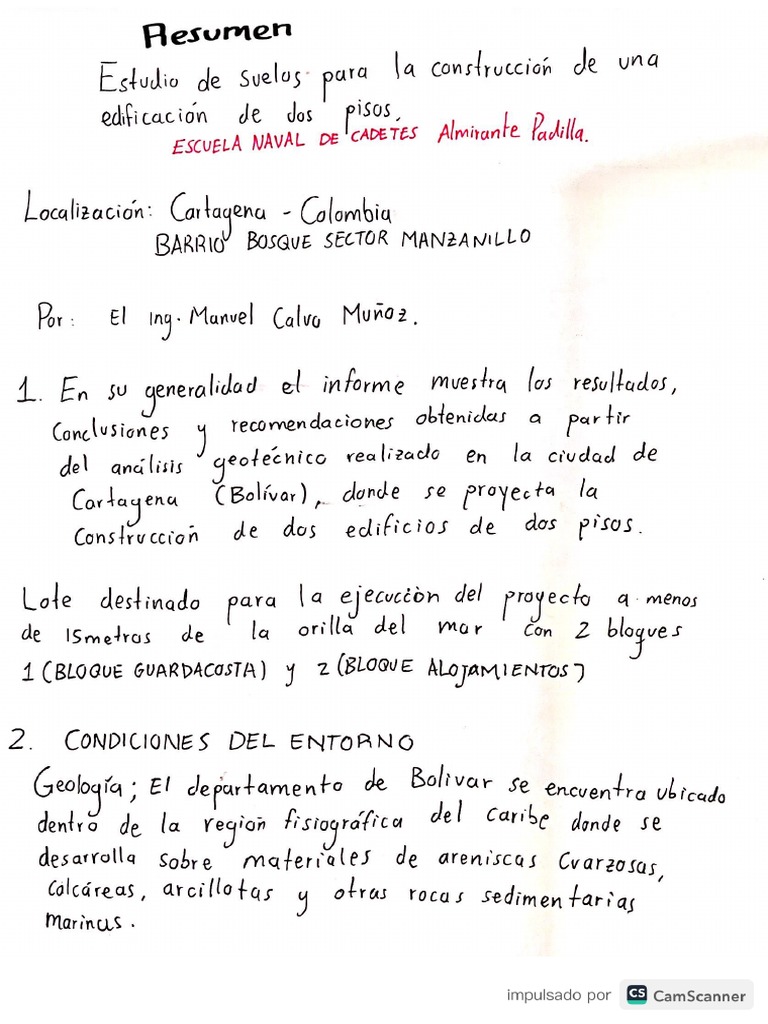 Resumen
Estudio de suelos para la construcción de una
edificación de dos pisos.
ESCUELA NAVAL DE CADETES Almirante Padilla.
Localización: Cartagena - Colombia
BARRIO BOSQUE SECTOR MANZANILLO
Por: El Ing. Manuel Calvo Muñoz.
1. En su generalidad el informe muestra los resultados,
Conclusiones y recomendaciones obtenidas a partir
del análisis geotécnico realizado en la ciudad de
Cartagena (Bolívar), donde se proyecta la
Construcción de dos edificios de dos pisos.
Lote destinado para la ejecución del proyecto a menos
de 15metros de la orilla del mar con 2 bloques
1 (BLOQUE GUARDACOSTA) y 2 (BLOQUE ALOJAMIENTOS)
2. CONDICIONES DEL ENTORNO
Geología; El departamento de Bolivar se encuentra ubicado
dentro de la región fisiográfica del caribe donde se
desarrolla sobre materiales de areniscas Cuarzosas,
Calcáreas, arcillotas y otras rocas sedimentarias
marinas.
impulsado por CS CamScanner